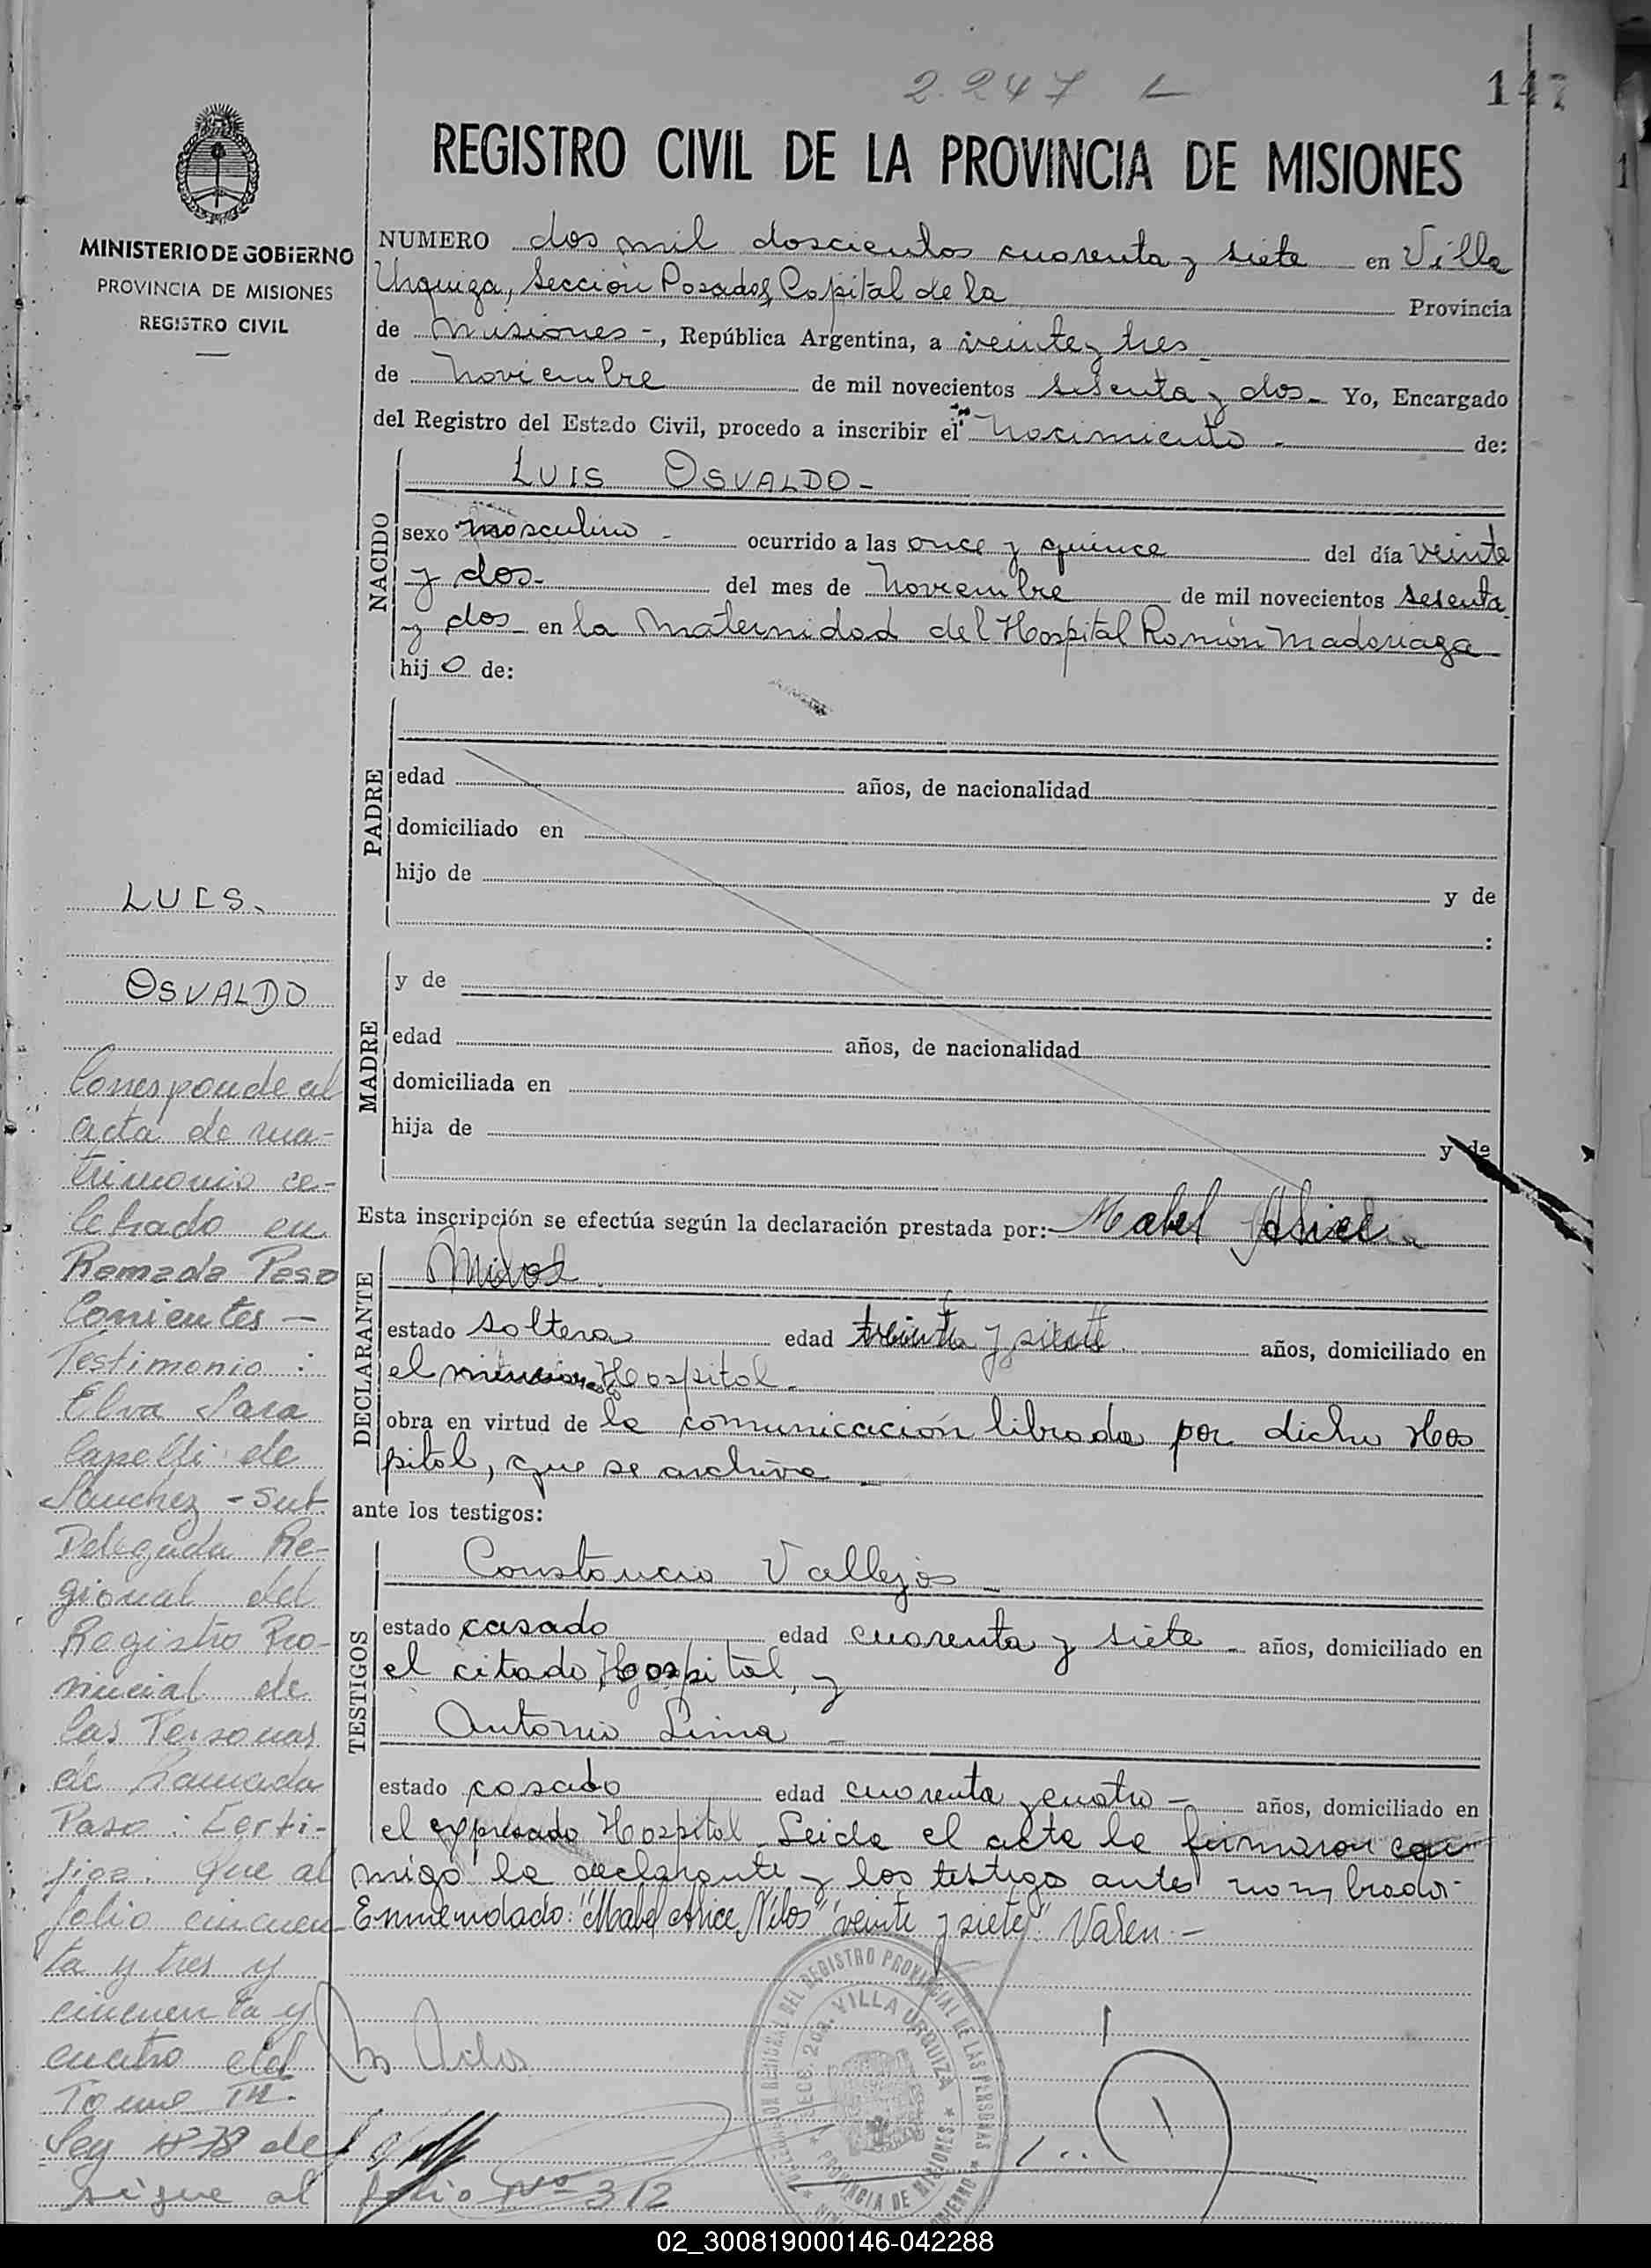 2.247 L
147
REGISTRO CIVIL DE LA PROVINCIA DE MISIONES
MINISTERIO DE GOBIERNO
PROVINCIA DE MISIONES
REGISTRO CIVIL
NUMERO dos mil doscientos cuarenta y siete en Villa
Urquiza, Sección Posadas, Capital de la Provincia
de Misiones -, República Argentina, a veinte y tres
de Noviembre de mil novecientos sesenta y dos - Yo, Encargado
del Registro del Estado Civil, procedo a inscribir el Nacimiento - de:
NACIDO
LUIS OSVALDO -
sexo masculino - ocurrido a las once y quince del día veinte
y dos - del mes de Noviembre de mil novecientos sesenta
y dos - en la Maternidad del Hospital Ramón Madariaga
hij o de:
PADRE
edad años, de nacionalidad
domiciliado en
hijo de y de
:
MADRE
y de
edad años, de nacionalidad
domiciliada en
hija de y de
Esta inscripción se efectúa según la declaración prestada por: Mabel
DECLARANTE
estado soltera edad y siete años, domiciliado en
el Hospital -
obra en virtud de la comunicación librada por dicho Hos
pital, que se archiva -
ante los testigos:
TESTIGOS
Constancio Vallejos -
estado casado edad cuarenta y siete - años, domiciliado en
el citado Hospital, y
Antonio Lima -
estado casado edad cuarenta y cuatro - años, domiciliado en
el expresado Hospital - Leida el acta la firmaron con
migo la declarante y los testigos antes nombrados -
Enmendado: "Mabel Alice Nilos" "veinte y siete". Valen -
LUIS.
OSVALDO
Corresponde al
acta de ma-
trimonio ce-
lebrado en
Ramada Paso
Corrientes -
Testimonio :
Elva Sara
Capelli de
Sanchez - Sub
Delegada Re-
gional del
Registro Pro-
vincial de
las Personas
de Ramada
Paso : Certi-
fica: Que al
folio cincuen
ta y tres y
cincuenta y
cuatro del
Tomo
Ley de
sigue al folio Nº 312
DELEGACION REGIONAL DEL REGISTRO PROVINCIAL DE LAS PERSONAS
SECC. 203. VILLA URQUIZA
PROVINCIA DE MISIONES
02_300819000146-042288